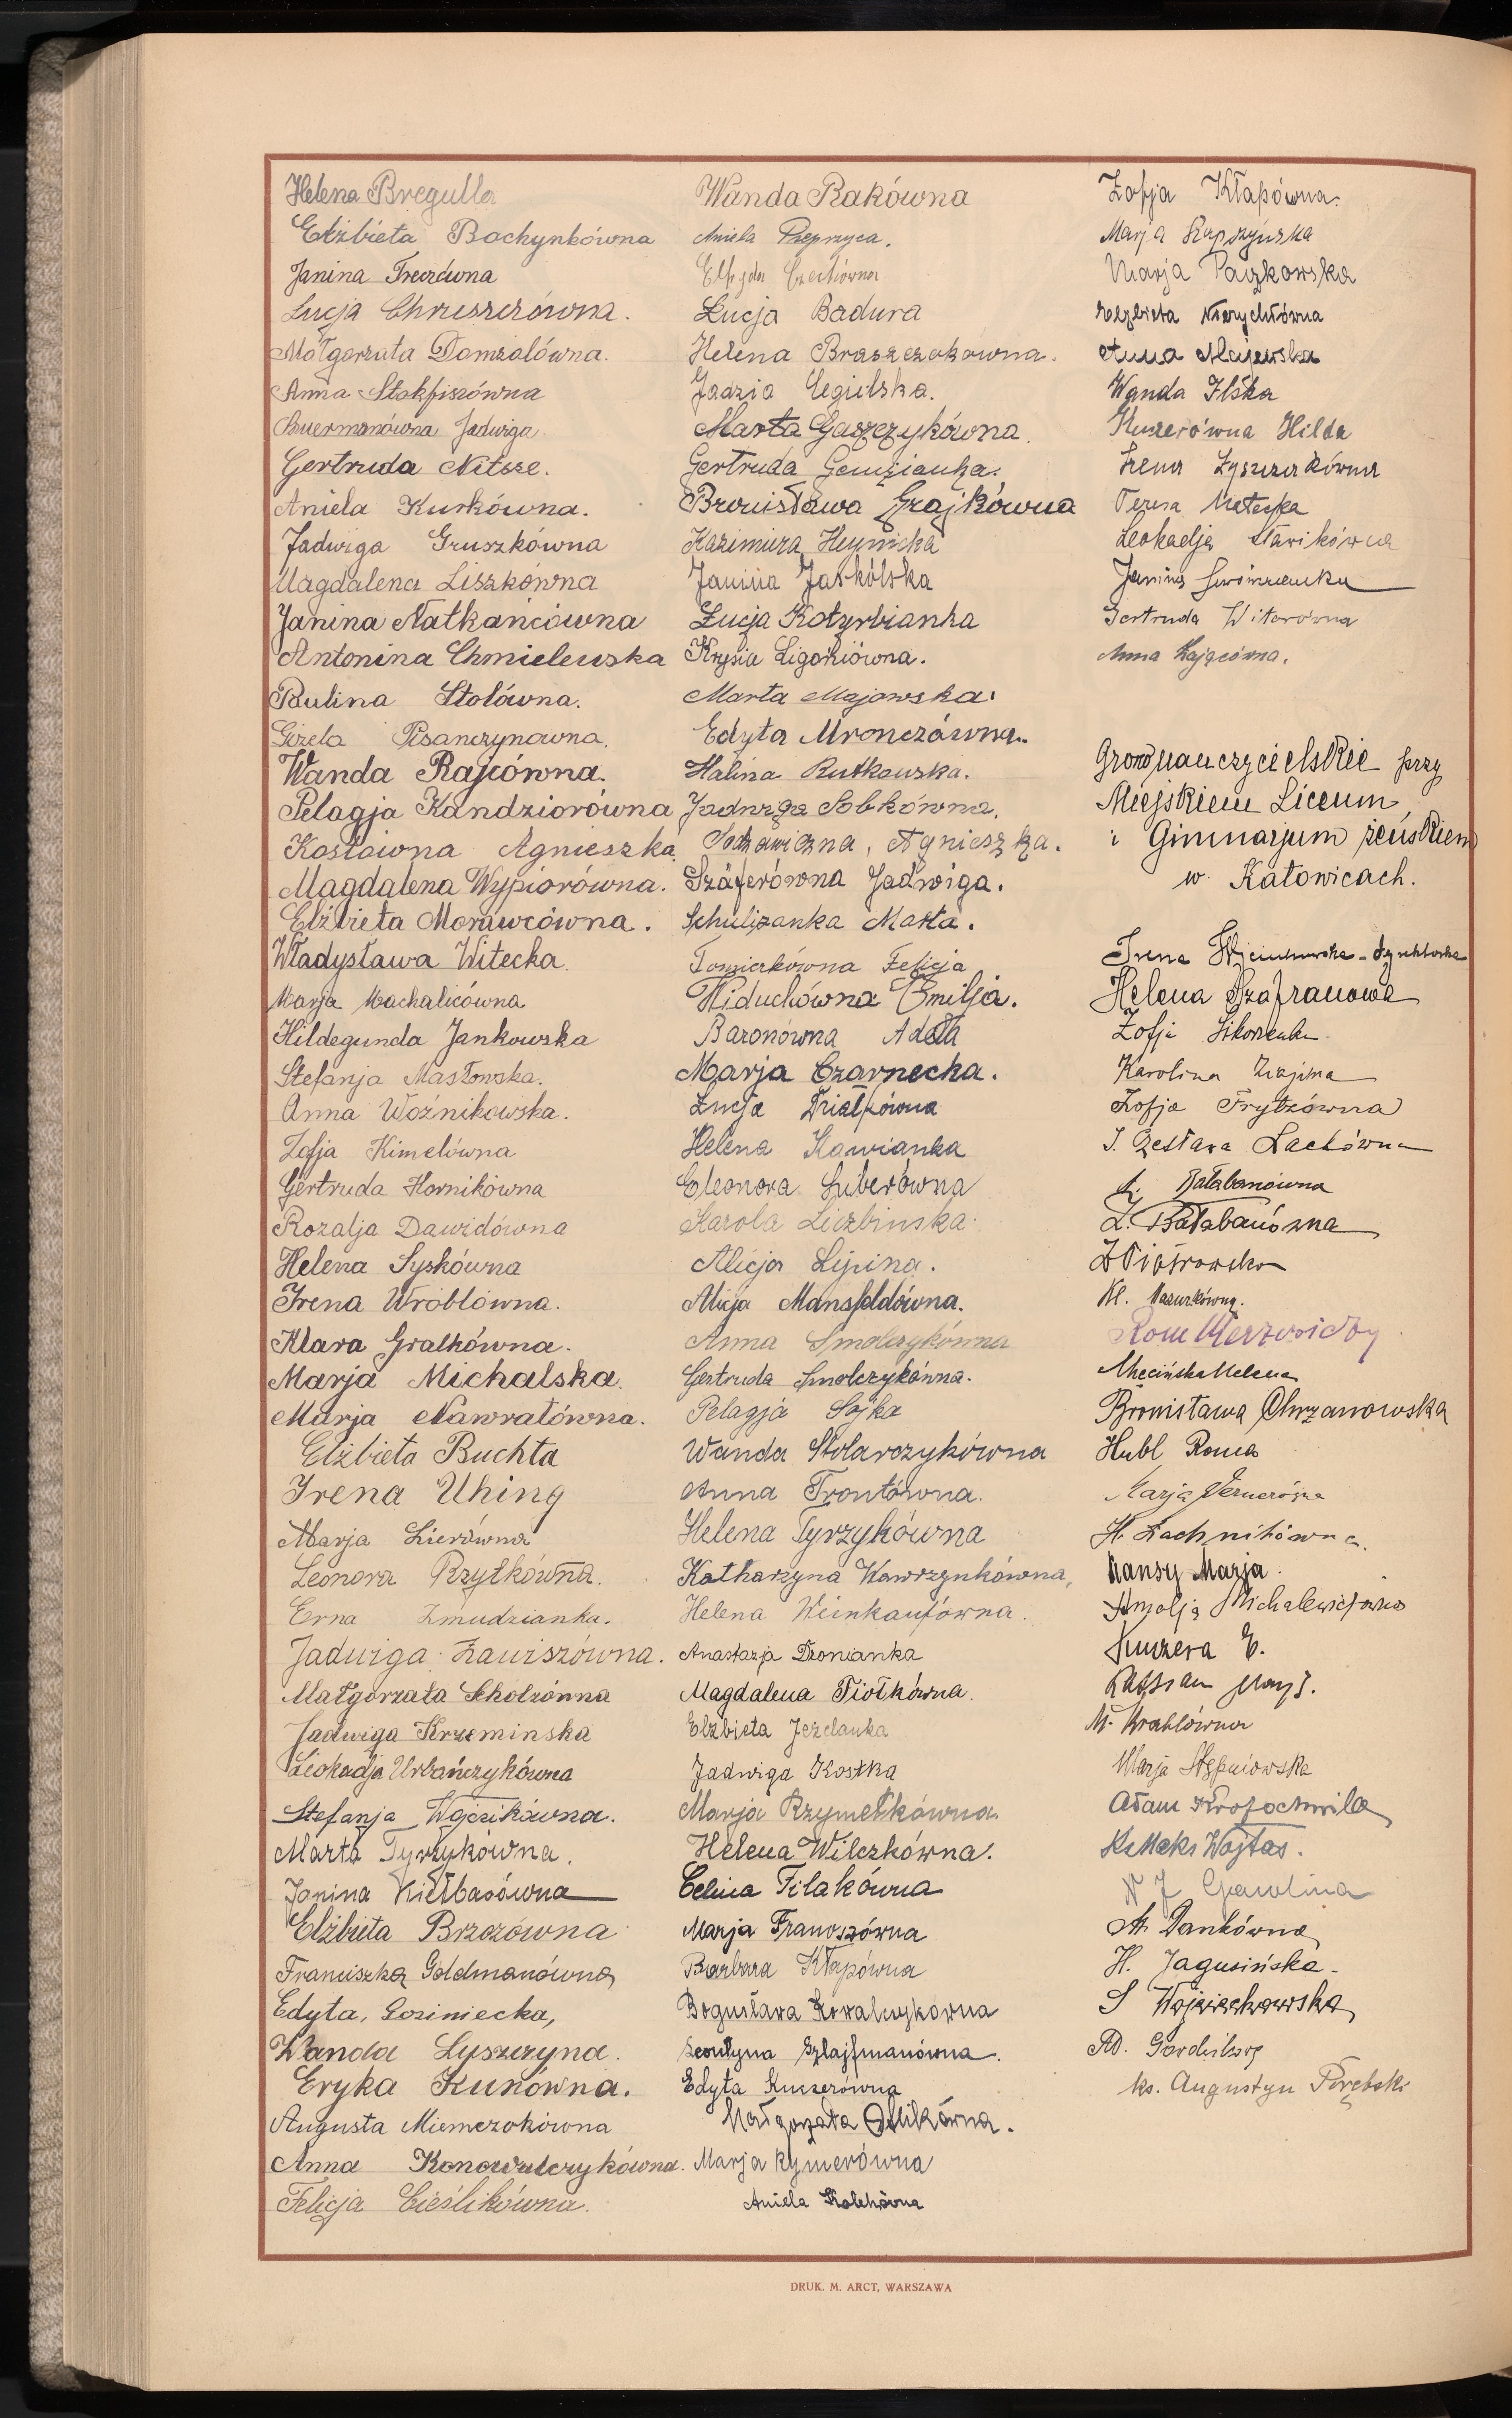 Helena Bregulla
Elżbieta Bochynkówna
Janina Treczówna
Łucja Chrzeszczówna.
Małgorzata Domzalówna.
Anna Stokfiszówna
Jadwiga
Gertruda Nitsze.
Aniela Kurkówna.
Jadwiga Gruszkówna
Magdalena Liszkówna
Janina Natkańcówna
Antonina Chmielewska
Paulina Stolówna.
Gizela Pisarczynowna.
Wanda Rajcówna.
Pelagja Kandziorówna
Kosłowna Agnieszka
Magdalena Wypiorówna.
Elżbieta Morawcówna.
Władysława Witecka.
Marja Machalicówna
Hildegunda Jankowska
Stefanja Masłowska.
Anna Woźnikowska.
Zofja Kimelówna
Gertruda Hornikówna
Rozalja Dawidówna
Helena Syskówna
Irena Wróblówna.
Klara Gralkówna.
Marja Michalska.
Marja Nawratówna.
Elżbieta Buchta
Irena Uhing
Marja Zierówna
Leonora Rzytkówna.
Erna Żmudzianka.
Jadwiga Zawiszówna.
Małgorzata Scholzónna
Jadwiga Krzeminska
Leokadja Urbańczykówna
Stefanja Wójcikówna.
Marta Tyrzykówna.
Janina Kiełbasówna
Elżbieta Brzozówna
Franciszka Goldmanówna
Edyta, Gosiniecka,
Wanda Lyszczyna.
Eryka Kunówna.
Augusta Niemczokówna
Anna Konowalczykówna.
Felicja Cieślikówna.
Wanda Rakówna
Aniela Przeprzyca.
Łucja Badura
Helena Braszczokowna.
Jadzia Cegielska.
Marta Gaszczykówna.
Gertruda Gemzianka.
Bronisława Grajkówna
Kazimiera Heynicka
Janina Jaskólska
Łucja Kotyrbianka
Krysia Ligoniówna.
Marta Majowska.
Edyta Mronczówna.
Halina Rutkowska.
Jadwiga Sobkówna.
Sodzawiczna, Agnieszka.
Szäferówna Jadwiga.
Schulizanka Marta.
Tomiczkówna Felicja
Widuchówna Emilja.
Baronówna Adela
Marja Czarnecka.
Łucja Działkówna
Helena Kawianka
Eleonora Luberówna
Karola Liczbinska.
Alicja Lipina.
Alicja Mansfeldówna.
Anna Smolczykówna
Gertruda Smolczykówna.
Pelagja Sojka
Wanda Stolarczykówna
Anna Trontówna.
Helena Tyrzykówna
Katharzyna Wawrzynkówna,
Helena Weinkaufówna.
Anastazja Dzonianka
Magdalena Fiołkówna.
Elżbieta Jezelanka
Jadwiga Kostka
Marja Rzymełkówna.
Helena Wilczkówna.
Celina Filakówna
Marja Franoszówna
Barbara Kłapówna
Bogusława Kowalczykówna
Leontyna Szlajfmanówna.
Edyta Kuczerówna
Małgorzata Oślikówna.
Marja Rymerówna
Aniela Kolchówna
Zofja Kłapówna.
Marja Kupczyńska
Marja Paczkowska
Elżbieta Nierychłówna
Anna Majewska
Wanda Ilska
Kuczerówna Hilda
Irena Łyszczarkówna
Teresa Matejka
Leokadja Sławikówna
Janina
Gertruda Witorówna
Anna Zającówna.
Grono nauczycielskie przy
Miejskiem Liceum
i Gimnazjum żeńskiem
w. Katowicach.
Irena Wojciechowska -
Helena Szafranowa
Zofja Sikorska
Karolina Zięjina
Zofja Frytzówna
J. Czesława Lachówna
J. Bałabanówna
Z. Bałabanówna
Z Piotrowska
Kl. Mazurkówna.
Męcińska Helena
Bronisława Chrzanowska
Hubl Roma
Marja Wernerówna
H. Lachnitówna.
Mansy Marja.
Anjolja Michalewiczówna
Kuczera E.
M. Wrablówna
Marja Stępniowska
Adam Krotochwila
Ks Maks Wojtas.
N J Gawlina
A. Dankówna
H. Jagusińska.
S Wojciechowska
Ad. Gardulski
ks. Augustyn Porębski
DRUK. M. ARCT, WARSZAWA